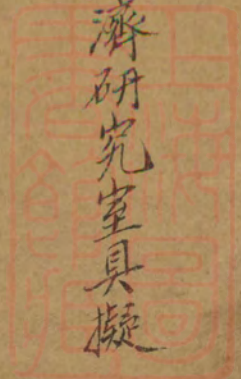 濟研究室具擬